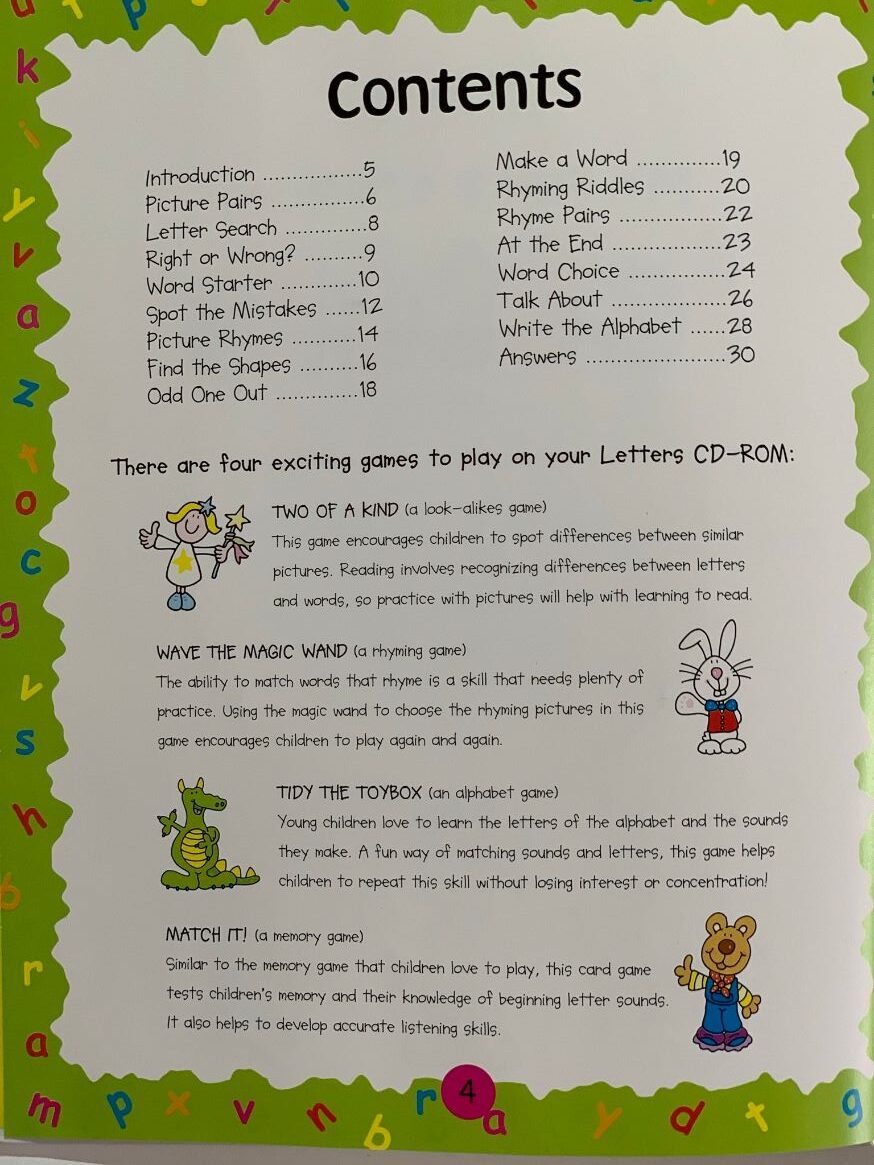 Contents
Introduction .................5
Picture Pairs ................6
Letter Search ..............8
Right or Wrong? ..........9
Word Starter .............10
Spot the Mistakes ......12
Picture Rhymes ...........14
Find the Shapes ..........16
Odd One Out ..............18
Make a Word ..............19
Rhyming Riddles ...........20
Rhyme Pairs .................22
At the End ...................23
Word Choice ................24
Talk About ...................26
Write the Alphabet ......28
Answers ........................30
There are four exciting games to play on your Letters CD-ROM:
TWO OF A KIND (a look-alikes game)
This game encourages children to spot differences between similar
pictures. Reading involves recognizing differences between letters
and words, so practice with pictures will help with learning to read.
WAVE THE MAGIC WAND (a rhyming game)
The ability to match words that rhyme is a skill that needs plenty of
practice. Using the magic wand to choose the rhyming pictures in this
game encourages children to play again and again.
TIDY THE TOYBOX (an alphabet game)
Young children love to learn the letters of the alphabet and the sounds
they make. A fun way of matching sounds and letters, this game helps
children to repeat this skill without losing interest or concentration!
MATCH IT! (a memory game)
Similar to the memory game that children love to play, this card game
tests children's memory and their knowledge of beginning letter sounds.
It also helps to develop accurate listening skills.
4
k
i
y
v
a
z
t
o
c
g
v
s
h
b
r
a
m p x v n b r a y d t g